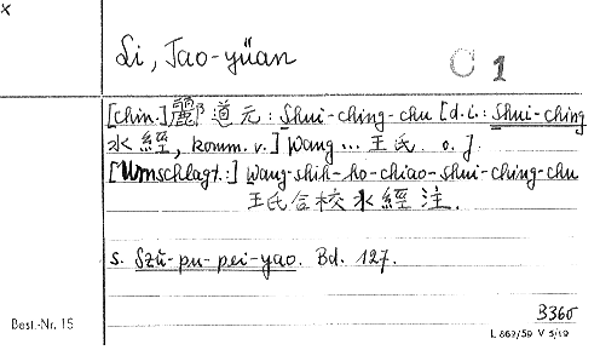 x
Li, Tao-yüan
C 1
[chin.] 酈道元: Shui-ching-chu [d.i.: Shui-ching
水經, komm. v.] Wang ... 王氏. o. J.
[Umschlagt.:] Wang-shih-ho-chiao-shui-ching-chu
王氏合校水經注.
s. Szŭ-pu-pei-yao. Bd. 127.
B360
Best.-Nr. 15
L 662/59 V 5/19